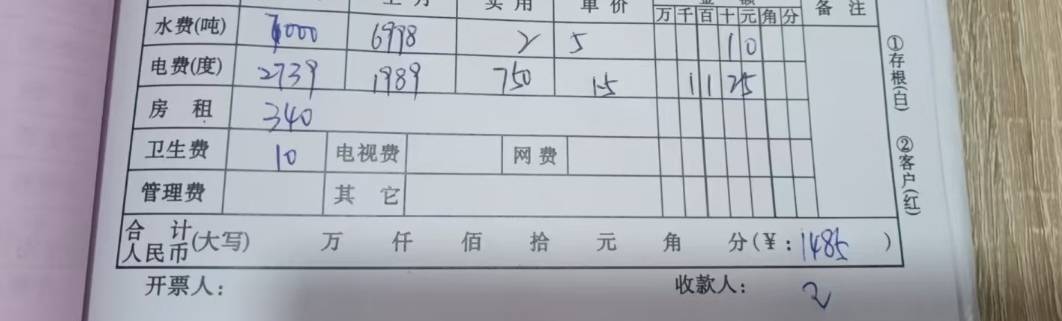 实用 单价 万千百十元角分 备注
水费(吨) 7000 6998 2 5 10
电费(度) 2739 1989 750 1.5 1125
房租 340
卫生费 10 电视费 网费
管理费 其它
合计人民币(大写) 万 仟 佰 拾 元 角 分(¥:1485)
开票人: 收款人:
①存根(白) ②客户(红)